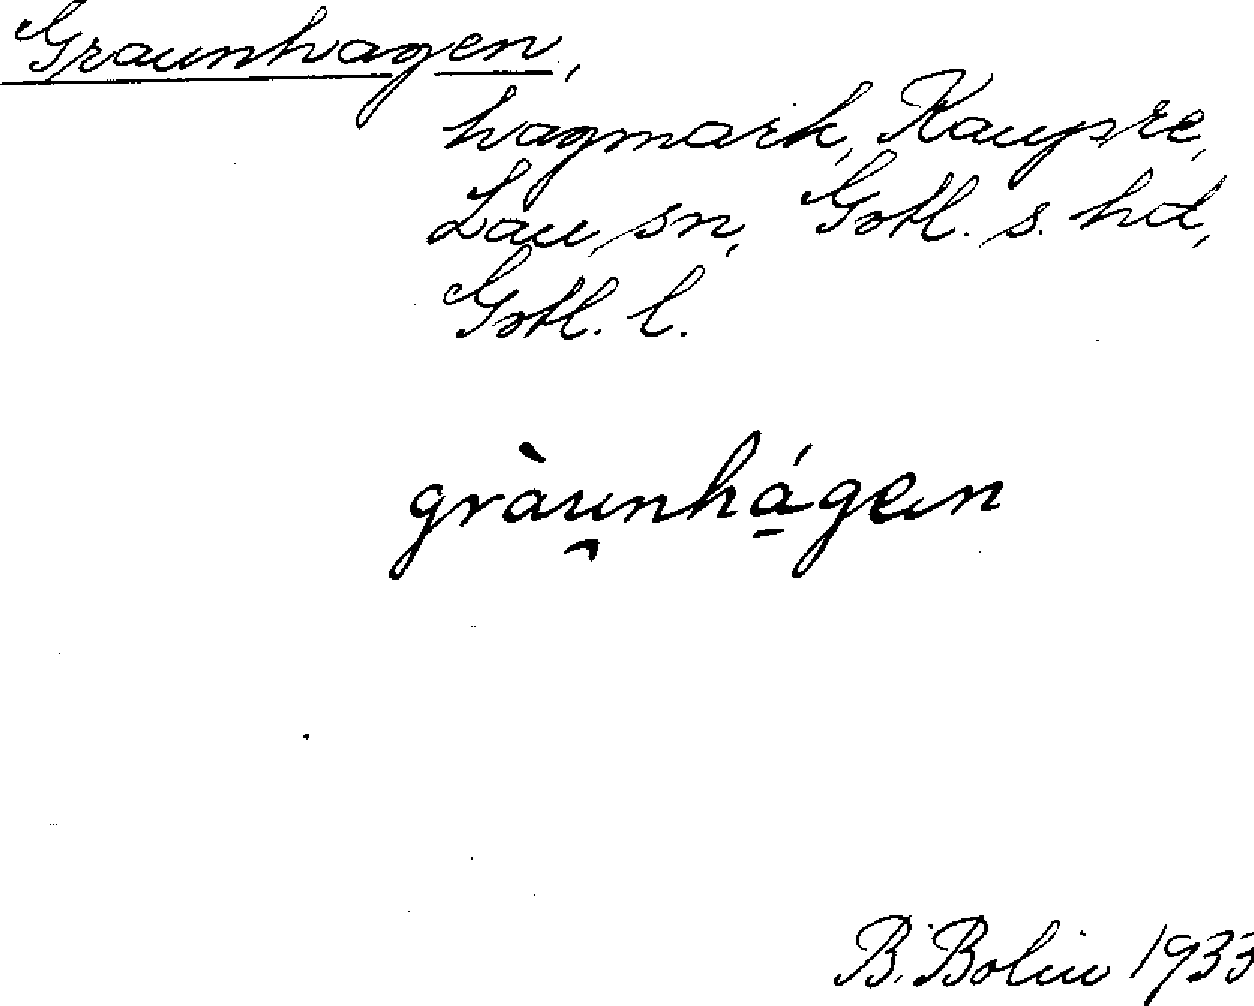 Graunhagen,
hagmark, Kaupre,
Lau sn, Gotl. s. hd,
Gotl. l.
gràu̯nhá̠gen
B. Bolin 1933